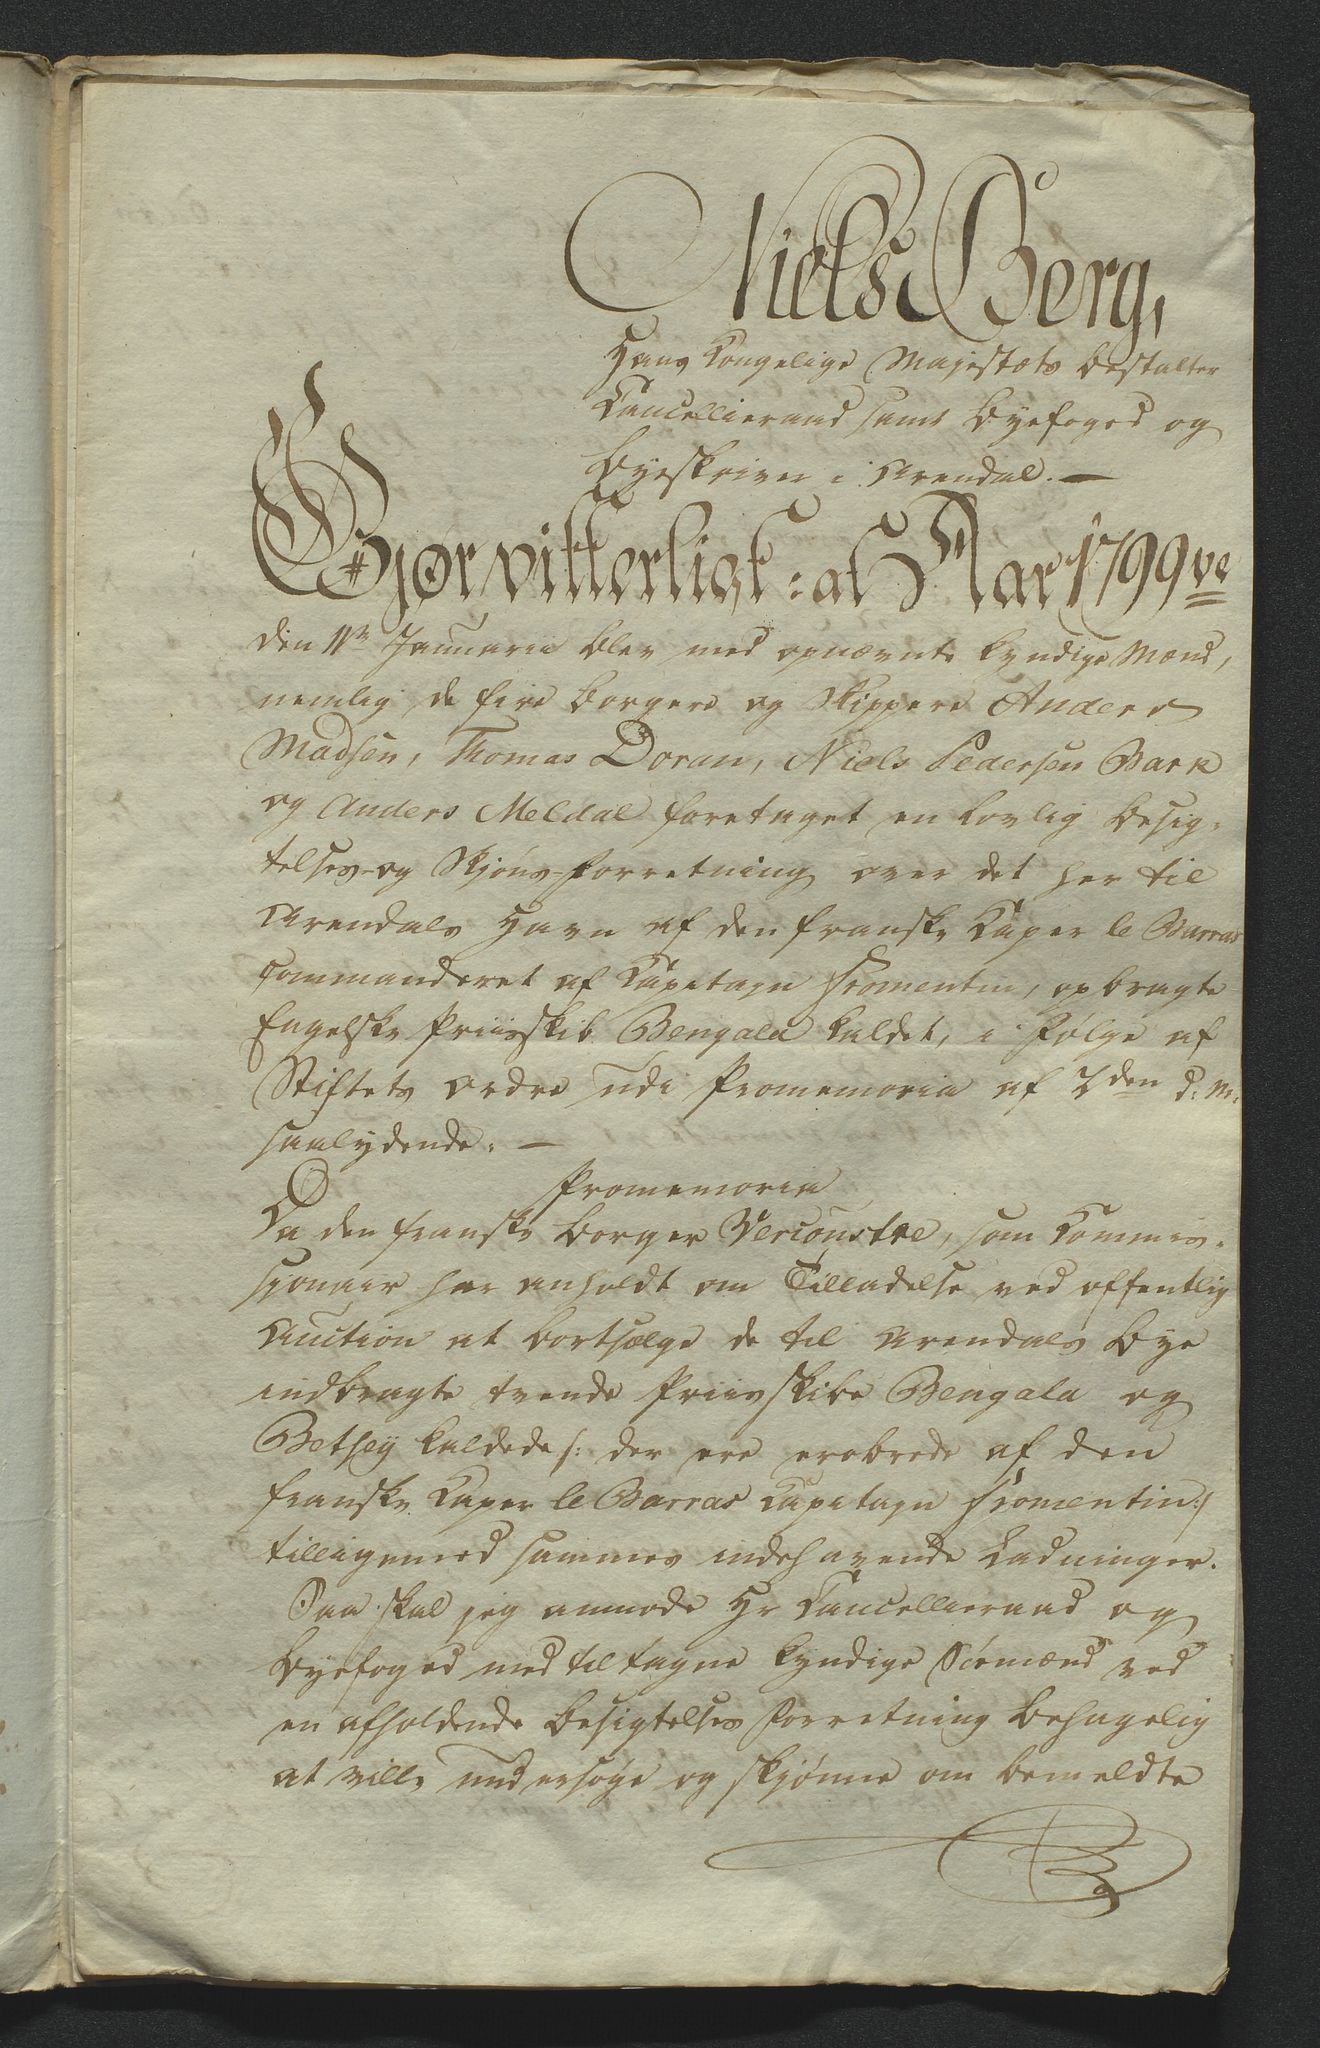 Niels Berg,
Hans Kongelige Majestæts bestalter
Cancellieraad samt Byefoged og
Byeskriver i Arendal. —
Gjør vitterligt: at Aar 1799ve
den 11te Januarii blev med opnævnte kyndige Mænd,
nemlig de fire Borgere og Skippere Anders
Madsen, Thomas Doran, Niels Pedersen Bark
og Anders Meldal foretaget en lovlig Besig-
telses- og Skjøns-Forretning over det her til
Arendals Havn af den franske Caper le Barras
commanderet af Capitayn Fromentin, opbragte
Engelske Priisskib Bengala kaldet, i Følge af
Stiftets Ordre udi Promemoria af 7den d: M:
saalydende: —
Promemoria
Da den franske Borger Vercoustre, som Commis-
sionair har anholdt om Tilladelse ved offentlig
Auction at bortsælge de til Arendals Bye
indbragte tvende Priisskibe Bengala og
Betsey kaldede /: der ere erobrede af den
franske Caper le Barras Capitayn Fromentin :/
tilligemed sammes indehavende Ladninger.
Saa skal jeg anmode Hr Cancellieraad og
Byefoged med tiltagne kyndige Søemænd ved
en afholdende Besigtelses Forretning behagelig
at ville undersøge og skjønne om bemeldte